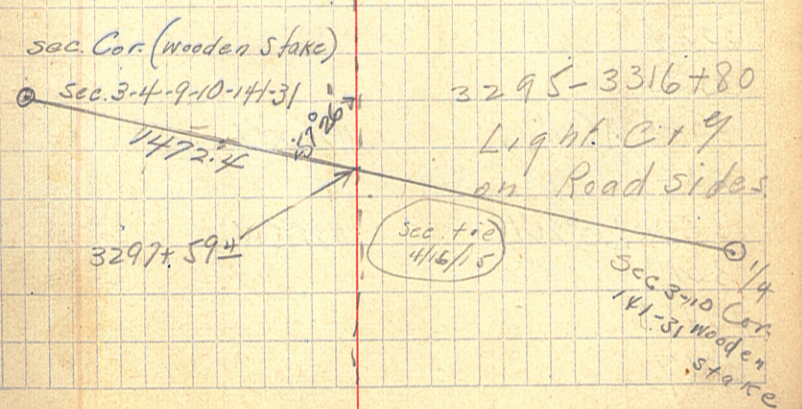 sec. Cor. (wooden stake)
sec. 3-4-9-10-141-31
1472.4
57° 26'
3295-3316+80
Light
on Road sides.
3297+594
sec. tie
4/16/15
1/4
Sec 3-10 Cor.
141-31 wooden
stake